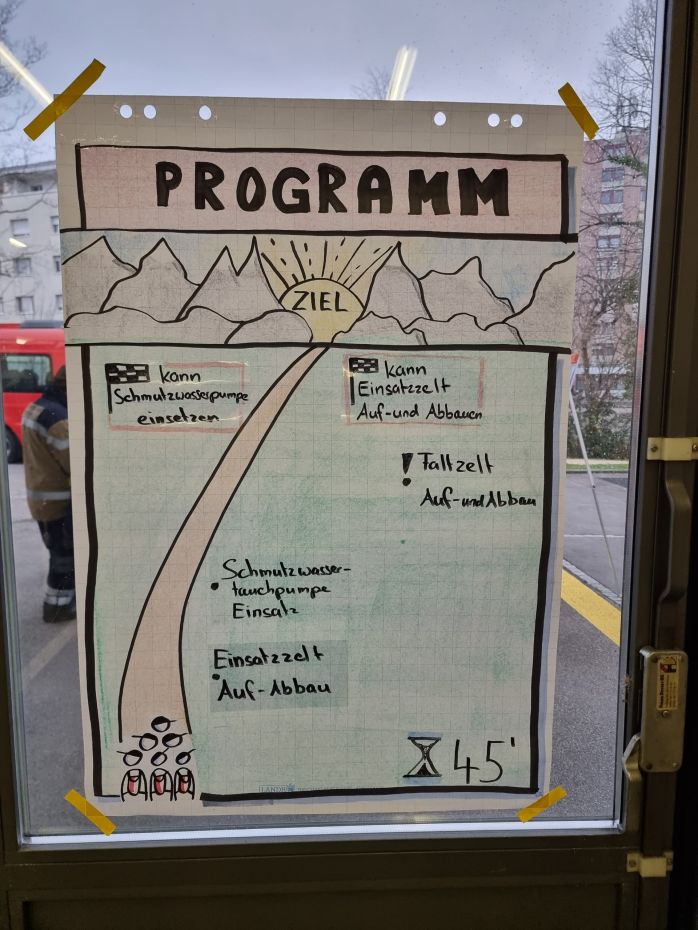 PROGRAMM
ZIEL
kann
Schmutzwasserpumpe
einsetzen
kann
Einsatzzelt
Auf-und Abbauen
! Faltzelt
Auf-und Abbau
• Schmutzwasser-
tauchpumpe
Einsatz
Einsatzzelt
• Auf-Abbau
45'